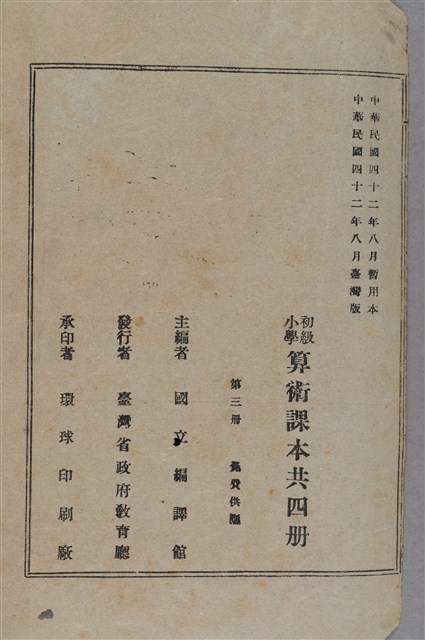 中華民國四十二年八月暫用本
中華民國四十二年八月臺灣版
初級小學 算術課本共四册
第三册 免費供應
主編者 國立編譯館
發行者 臺灣省政府敎育廳
承印者 環球印刷廠